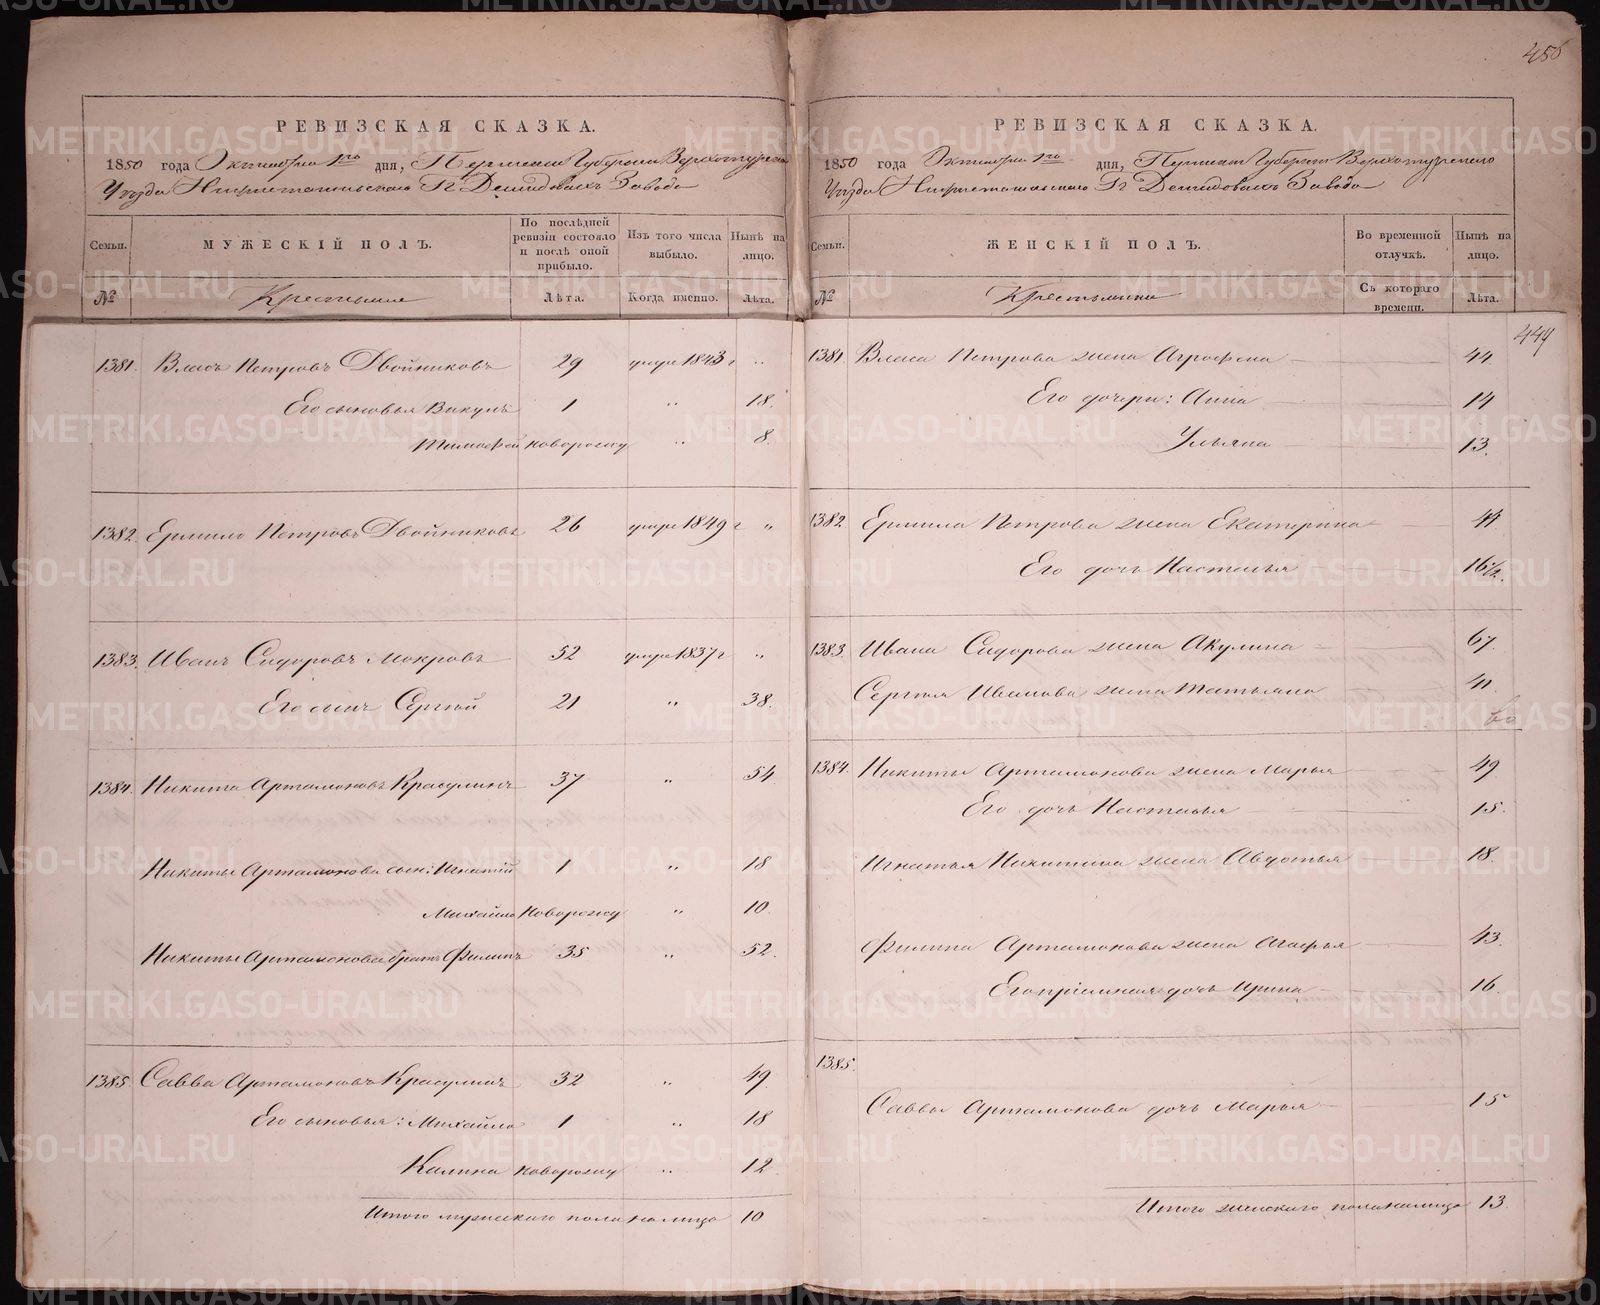 450
РЕВИЗСКАЯ СКАЗКА.
1850 года Октября 1го дня, Пермской Губернии Верхотурскаго
Уезда Нижнетагильскаго Гг Демидовыхъ Завода
Семьи. МУЖЕСКІЙ ПОЛЪ. По послѣдней ревизіи состояло и послѣ оной прибыло. Изъ того числа выбыло. Нынѣ на лицо.
№ Крестьяне Лѣта. Когда именно. Лѣта.
1381. Власъ Петровъ Двойниковъ 29 умре 1843 г "
Его сыновья Викулъ 1 " 18.
Тимофей новорожд " 8.
1382. Ермило Петровъ Двойниковъ 26 умре 1849 г "
1383. Иванъ Сидоровъ Мокровъ 52 умре 1837 г "
Его сынъ Сергѣй 21 " 38.
1384. Никита Артамоновъ Красулинъ 37 " 54
Никиты Артамонова сын: Игнатій 1 " 18
Михайло Новорожд " 10.
Никиты Артамонова братъ Филипъ 35 " 52.
1385. Савва Артамоновъ Красулинъ 32 " 49
Его сыновья: Михайло 1 " 18
Калина новорожд " 12
Итого мужескаго пола налицо 10
РЕВИЗСКАЯ СКАЗКА.
1850 года Октября 1го дня, Пермской Губерніи Верхотурскаго
Уезда Нижнетагильскаго Гг Демидовыхъ Завода
Семьи. ЖЕНСКІЙ ПОЛЪ. Во временной отлучкѣ. Нынѣ на лицо.
№ Крестьянки Съ котораго времени. Лѣта.
444
1381. Власа Петрова жена Агрофена 44.
Его дочери: Анна 14
Ульяна 13.
1382. Ермила Петрова жена Екатерина 44
Его дочь Настасья 16 1/2.
1383. Ивана Сидорова жена Акулина 67.
Сергѣя Иванова жена Татьяна 41.
1384. Никиты Артамонова жена Марья 49
Его дочь Настасья 15.
Игнатья Никитина жена Авдотья 18.
Филипа Артамонова жена Агафья 43.
Его пріемная дочь Ирина 16.
1385.
Саввы Артамонова дочь Марья 15
Итого женскаго пола налицо 13.
METRIKI.GASO-URAL.RU